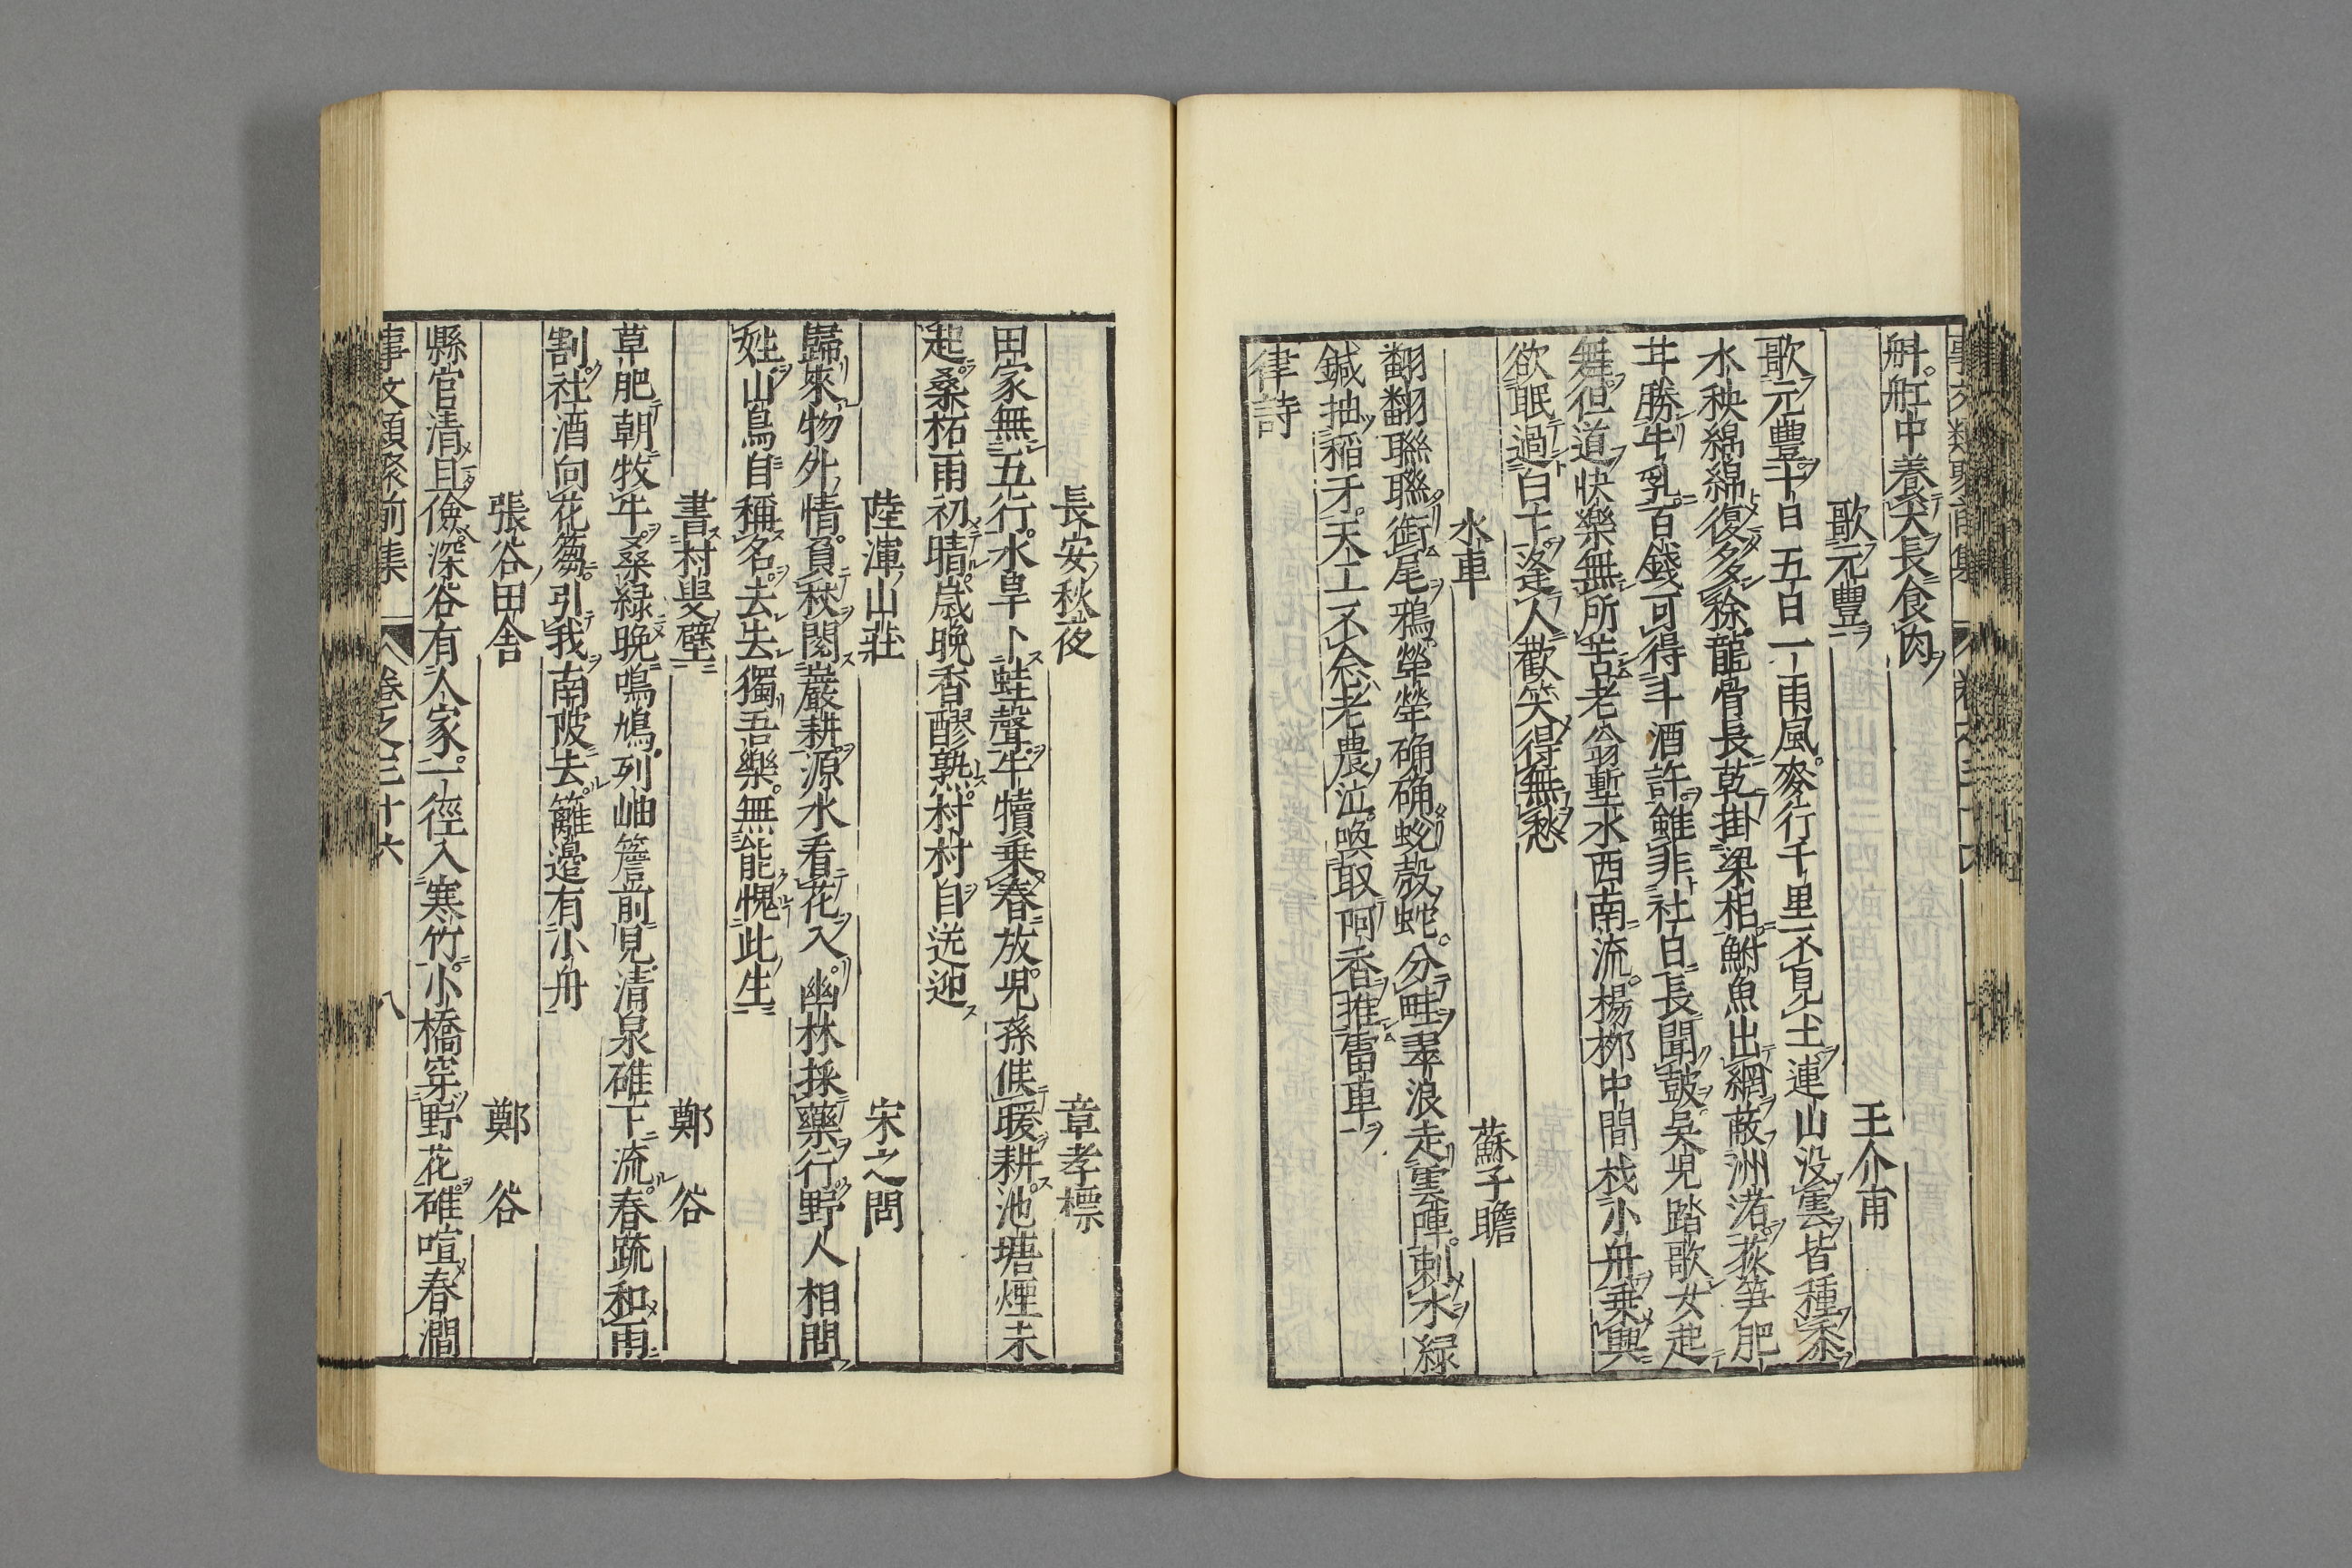 斛舡中養犬長食肉
歌元豐　王介甫
歌元豐十日五日一雨風麥行千里不見土連山没雲皆種黍
水秧綿綿復多稌龍骨長乾掛梁梠鰣魚出網蔽洲渚荻笋肥
甘勝牛乳百錢可得斗酒許雖非社日長聞皷吳兒踏歌女起
舞但道快樂無所苦老翁塹水西南流楊桺中間杙小舟乗興
欲眠過白下逢人歡笑得無愁
水車　蘇子瞻
翻翻聯聯銜尾鴉犖犖确确蛻殼蛇分畦翠浪走雲陣刺水緑
鍼抽稻牙天工不念老農泣喚取阿香推雷車
律詩
長安秋夜　章孝標
田家無五行水旱卜蛙聲牛犢乗春放児孫候暖耕池塘煙未
起桑柘雨初晴歳晩香醪熟村村自送迎
陸渾山莊　宋之問
歸來物外情負杖閱巖耕源水看花入幽林採藥行野人相問
姓山鳥自稱名去去獨吾樂無能愧此生
書村叟壁　鄭谷
草肥朝牧牛桑緑晩鳴鳩列岫簷前見清泉碓下流春蔬和雨
割社酒向花篘引我南陂去籬邉有小舟
張谷田舎　鄭谷
縣官清且儉深谷有人家一徑入寒竹小橋穿野花碓喧春澗
事文類聚前集　卷之三十六　八